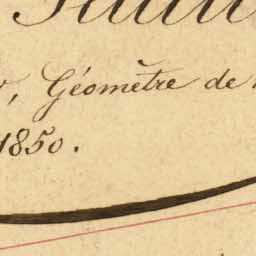 , Géomètre de
1850.